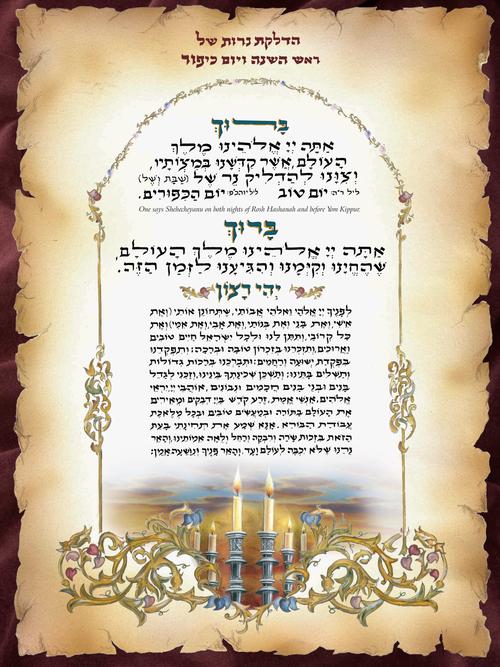 הדלקת נרות של
ראש השנה ויום כיפור
בָּרוּךְ
אַתָּה יְיָ אֱלֹהֵינוּ מֶלֶךְ
הָעוֹלָם, אֲשֶׁר קִדְּשָׁנוּ בְּמִצְוֹתָיו,
וְצִוָּנוּ לְהַדְלִיק נֵר שֶׁל (שַׁבָּת וְשֶׁל)
ליל ר״ה: יוֹם טוֹב ליל יוהכ״פ: יוֹם הַכִּפּוּרִים.
One says Shehecheyanu on both nights of Rosh Hashanah and before Yom Kippur.
בָּרוּךְ
אַתָּה יְיָ אֱלֹהֵינוּ מֶלֶךְ הָעוֹלָם,
שֶׁהֶחֱיָנוּ וְקִיְּמָנוּ וְהִגִּיעָנוּ לַזְּמַן הַזֶּה.
יְהִי רָצוֹן
לְפָנֶיךָ יְיָ אֱלֹהַי וֵאלֹהֵי אֲבוֹתַי, שֶׁתְּחוֹנֵן אוֹתִי (וְאֶת
אִישִׁי, וְאֶת בָּנַי וְאֶת בְּנוֹתַי, וְאֶת אָבִי, וְאֶת אִמִּי) וְאֶת
כָּל קְרוֹבַי, וְתִתֵּן לָנוּ וּלְכָל יִשְׂרָאֵל חַיִּים טוֹבִים
וַאֲרוּכִים, וְתִזְכְּרֵנוּ בְּזִכְרוֹן טוֹבָה וּבְרָכָה; וְתִפְקְדֵנוּ
בִּפְקֻדַּת יְשׁוּעָה וְרַחֲמִים; וּתְבָרְכֵנוּ בְּרָכוֹת גְּדוֹלוֹת
וְתַשְׁלִים בָּתֵּינוּ; וְתַשְׁכֵּן שְׁכִינָתְךָ בֵּינֵינוּ, וְזַכֵּנִי לְגַדֵּל
בָּנִים וּבְנֵי בָנִים חֲכָמִים וּנְבוֹנִים, אוֹהֲבֵי יְיָ, יִרְאֵי
אֱלֹהִים, אַנְשֵׁי אֱמֶת, זֶרַע קֹדֶשׁ בַּיְיָ דְּבֵקִים וּמְאִירִים
אֶת הָעוֹלָם בַּתּוֹרָה וּבְמַעֲשִׂים טוֹבִים וּבְכָל מְלֶאכֶת
עֲבוֹדַת הַבּוֹרֵא. אָנָּא שְׁמַע אֶת תְּחִנָּתִי בָּעֵת
הַזֹּאת בִּזְכוּת שָׂרָה וְרִבְקָה וְרָחֵל וְלֵאָה אִמּוֹתֵינוּ, וְהָאֵר
נֵרֵנוּ שֶׁלֹּא יִכְבֶּה לְעוֹלָם וָעֶד, וְהָאֵר פָּנֶיךָ וְנִוָּשֵׁעָה אָמֵן: